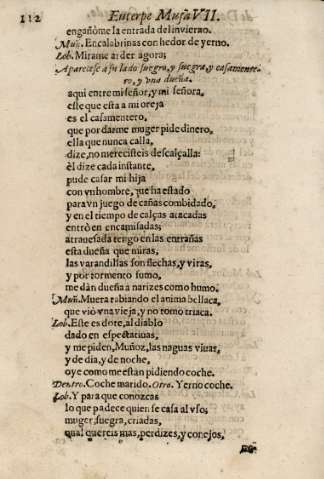 112 Euterpe Musa VII.
engañòme la entrada del invierno.
Muñ. Encalabrinas con hedor de yerno.
Lob. Mirame arder agora;
Aparecese a su lado suegro, y suegra, y casamente-
ro, y vna dueña.
aqui entre mi señor, y mi señora,
este que esta a mi oreja
es el casamentero,
que por darme muger pide dinero,
ella que nunca calla,
dize, no merecisteis descalçalla:
èl dize cada instante,
pude casar mi hija
con vn hombre, que ha estado
para vn juego de cañas combidado,
y en el tiempo de calças atacadas
entrò en encamisadas;
atrauesada tengo en las entrañas
esta dueña que miras,
las varandillas son flechas, y viras,
y por tormento sumo,
me dàn dueña a narizes como humo.
Muñ. Muera rabiando el anima bellaca,
que viò vna vieja, y no tomò triaca.
Lob. Este es dote, al diablo
dado en espectatiuas,
y me piden, Muñoz, las naguas viuas,
y de dia, y de noche,
oye como me estàn pidiendo coche.
Dentro. Coche marido. Otro. Yerno coche.
Lob. Y para que conozcas
lo que padece quien se casa al vso;
muger, suegra, criadas,
qual quereis mas, perdizes, y conejos,